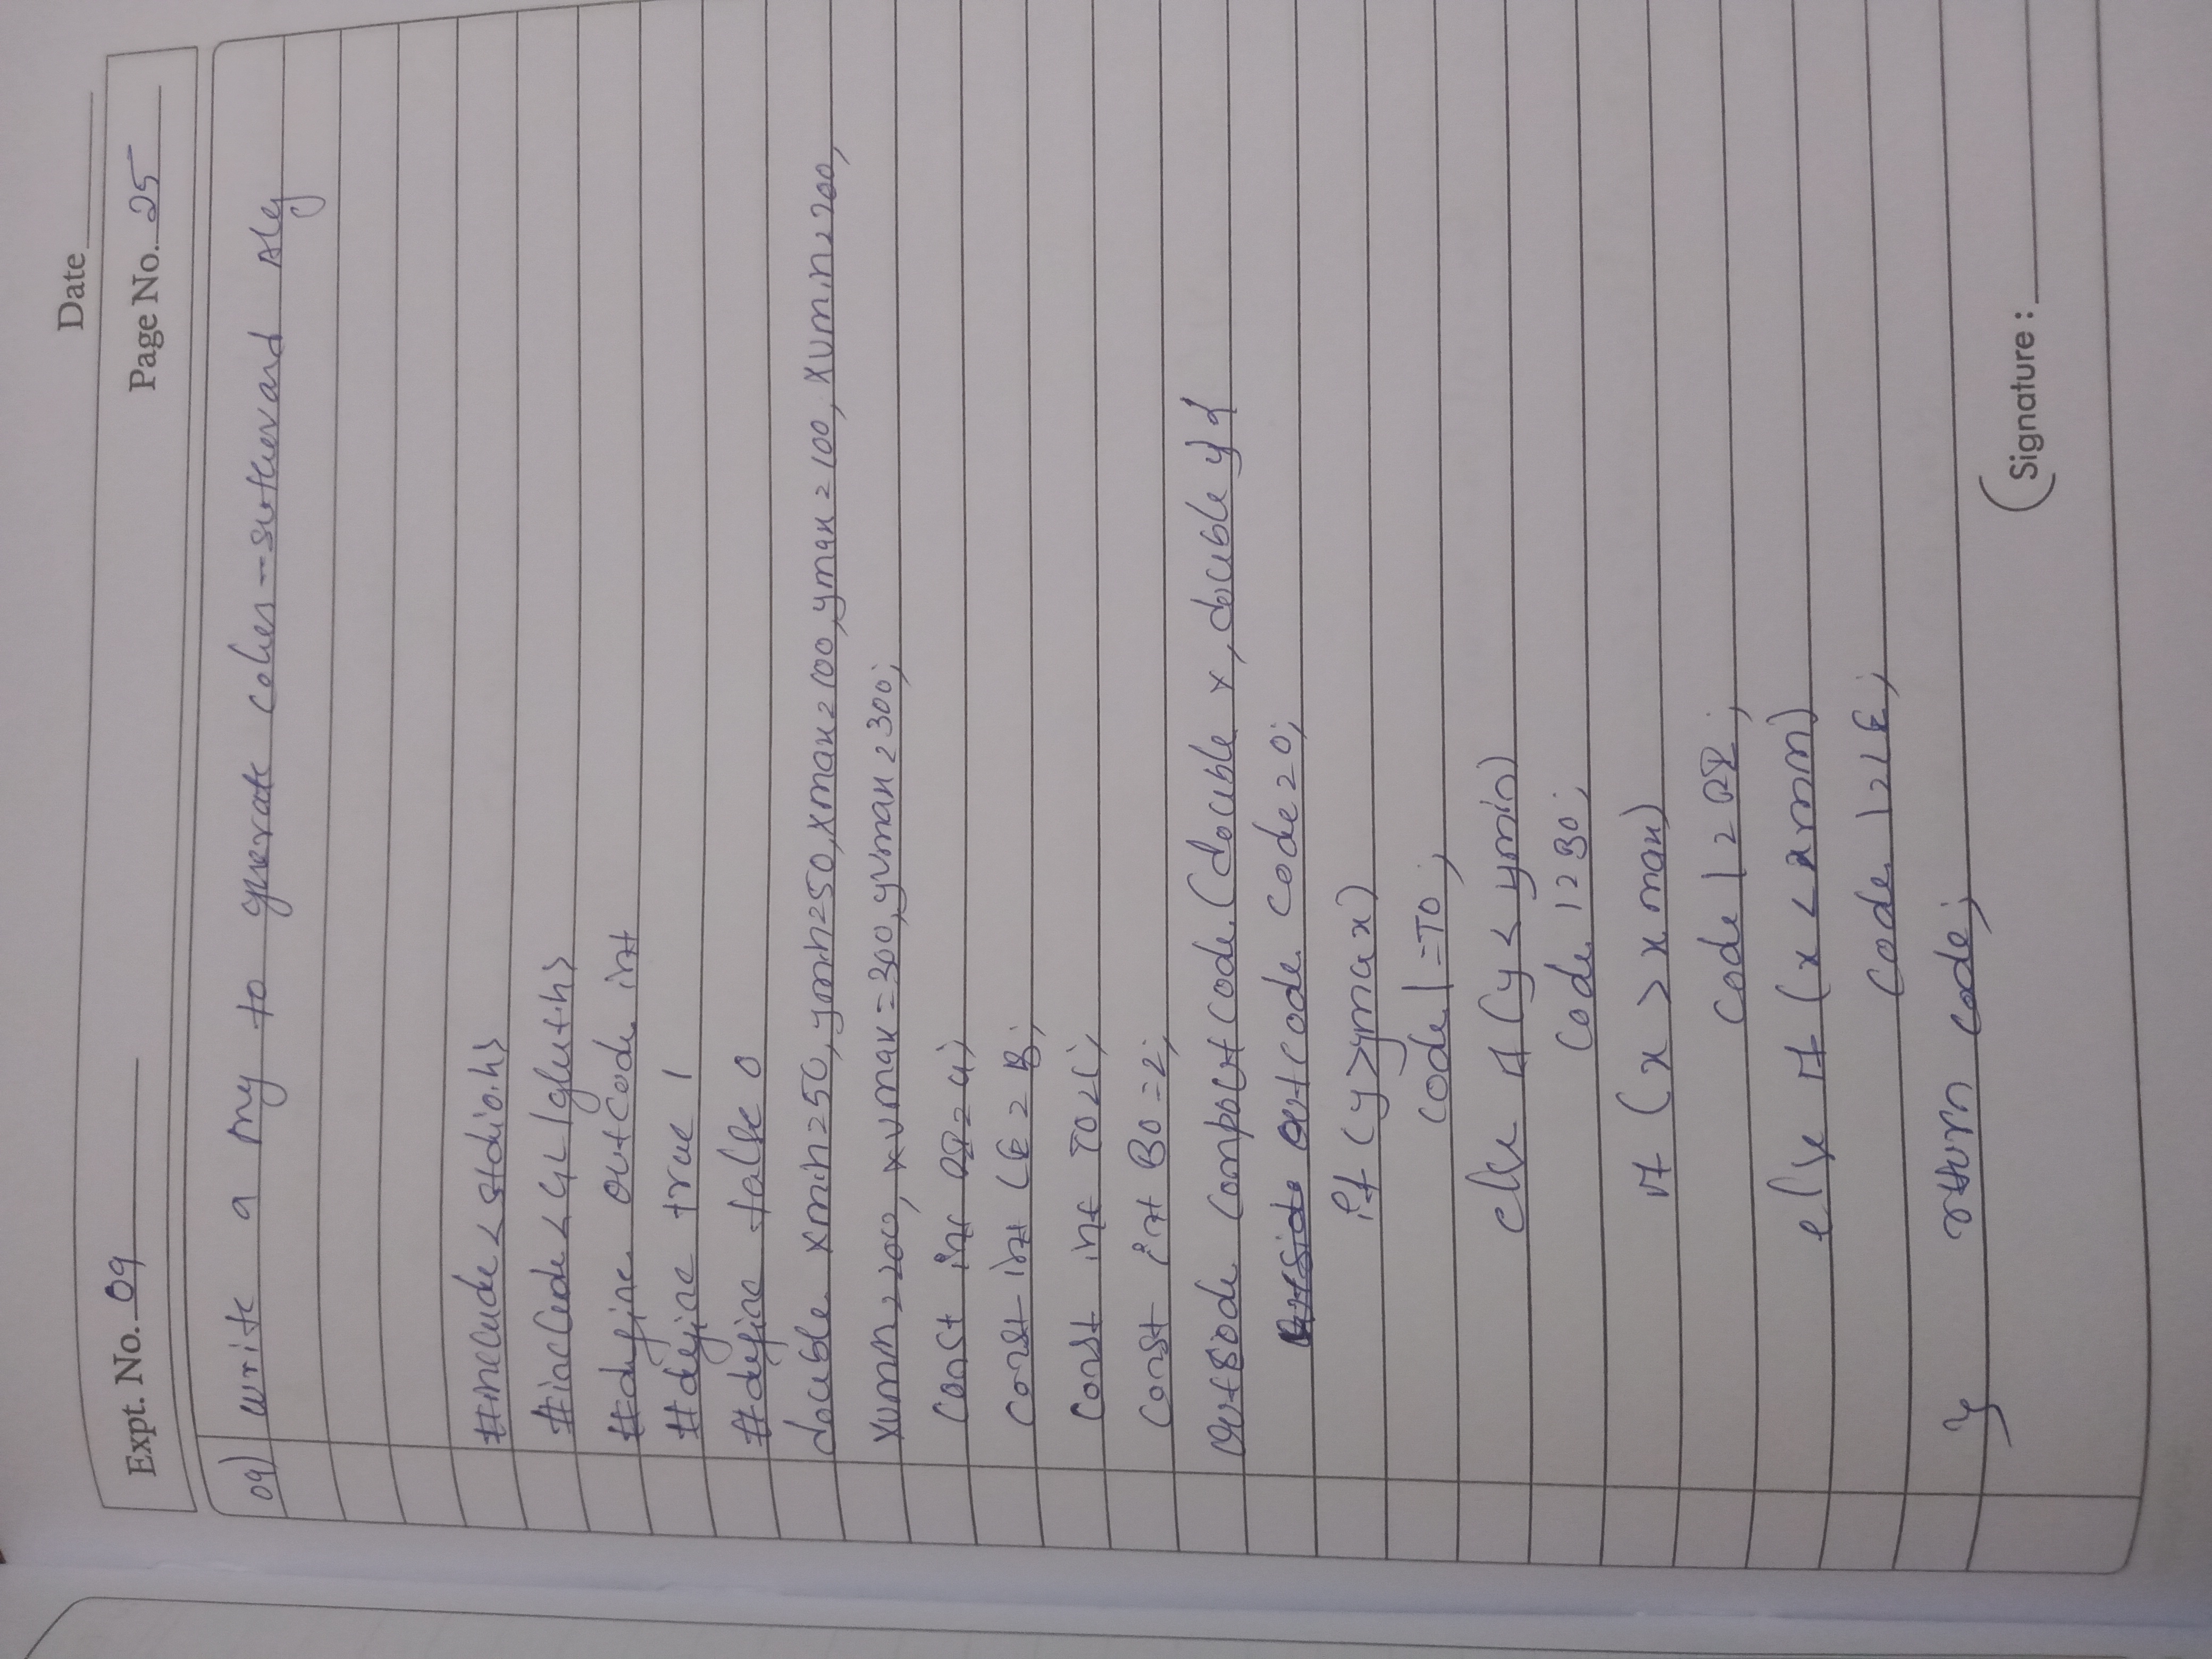 Date
Expt. No. 09
Page No. 25
09) write a to generate cohen--sutherland Alg
#include<stdio.h>
#include<GL/glut.h>
#define outcode int
#define true 1
#define false 0
double xmin=50, ymin=50, xmax=100, ymax=100, xvmin=200,
xvmin=200, xvmax=300, yvmax=300;
const int = 4;
const int LE = 8;
const int TO=1;
const int BO=2;
outcode (double x, double y) {
outcode code=0;
if (y>ymax)
code |=TO;
else if (y<ymin)
code |= BO;
if (x > xmax)
code |=
else if (x < xmin)
code |= LE;
return code;
}
(Signature :